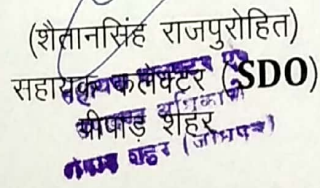 (शैतानसिंह राजपुरोहित)
सहायक कलेक्टर (SDO)
पीपाड़ शहर
शहर (जोधपुर)